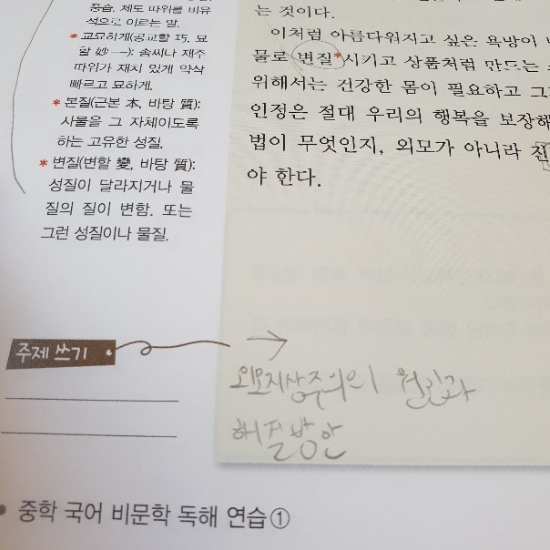 풍습, 제도 따위를 비유
적으로 이르는 말.
* 교묘하게(공교할 巧, 묘
할 妙―): 솜씨나 재주
따위가 재치 있게 약삭
빠르고 묘하게.
* 본질(근본 本, 바탕 質):
사물을 그 자체이도록
하는 고유한 성질.
* 변질(변할 變, 바탕 質):
성질이 달라지거나 물
질의 질이 변함. 또는
그런 성질이나 물질.
는 것이다.
이처럼 아름다워지고 싶은 욕망이
물로 변질*시키고 상품처럼 만드는
위해서는 건강한 몸이 필요하고 그
인정은 절대 우리의 행복을 보장해
법이 무엇인지, 외모가 아니라 진
야 한다.
주제 쓰기
외모지상주의의 원인과
해결방안
중학 국어 비문학 독해 연습①